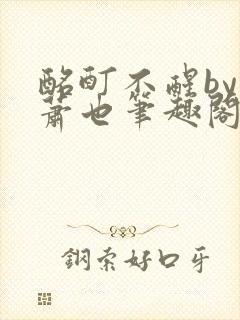 酩酊不醒by
萧也笔趣阁
钢索好口牙